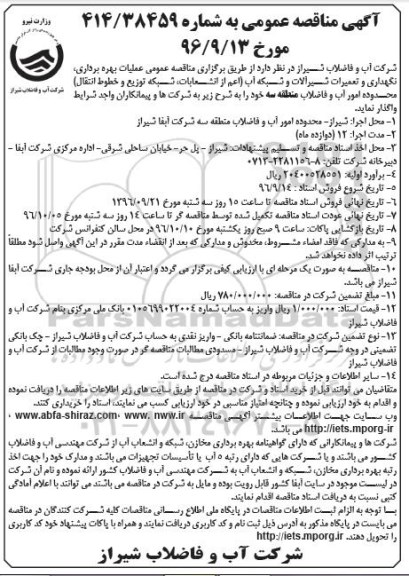 وزارت نیرو
شرکت آب و فاضلاب شیراز
آگهی مناقصه عمومی به شماره ۴۱۴/۳۸۴۵۹
مورخ ۹۶/۹/۱۳
شرکت آب و فاضلاب شیراز در نظر دارد از طریق برگزاری مناقصه عمومی عملیات بهره برداری،
نگهداری و تعمیرات شیرآلات و شبکه آب (اعم از انشعابات، شبکه توزیع و خطوط انتقال)
محدوده امور آب و فاضلاب منطقه سه خود را به شرح زیر به شرکت ها و پیمانکاران واجد شرایط
واگذار نماید.
۱- محل اجرا: شیراز- محدوده امور آب و فاضلاب منطقه سه شرکت آبفا شیراز
۲- مدت اجرا: ۱۲ (دوازده ماه)
۳- محل اخذ اسناد مناقصه و تسلیم پیشنهادات: شیراز - پل حر- خیابان ساحلی شرقی- اداره مرکزی شرکت آبفا -
دبیرخانه شرکت تلفن: ۸-۲۲۸۱۱۵۶-۰۷۱۳
۴- برآورد اولیه: ۲۰۴۰۰۵۲۸۵۵۱ ریال
۵- تاریخ شروع فروش اسناد : ۹۶/۹/۱۴
۶- تاریخ نهائی فروش اسناد مناقصه تا ساعت ۱۵ روز سه شنبه مورخ ۱۳۹۶/۰۹/۲۱
۷- تاریخ نهائی عودت اسناد مناقصه تکمیل شده توسط مناقصه گر تا ساعت ۱۴ روز سه شنبه مورخ ۹۶/۱۰/۰۵
۸- تاریخ بازگشایی پاکات: ساعت ۹ صبح روز یکشنبه مورخ ۹۶/۱۰/۱۰ در محل سالن کنفرانس شرکت
۹- به مدارکی که فاقد امضاء مشروط، مخدوش و مدارکی که بعد از انقضاء مدت مقرر در این آگهی واصل شود مطلقاً
ترتیب اثر داده نخواهد شد.
۱۰- مناقصه به صورت یک مرحله ای با ارزیابی کیفی برگزار می گردد و اعتبار آن از محل بودجه جاری شرکت آبفا
شیراز می باشد.
۱۱- مبلغ تضمین شرکت در مناقصه: ۷۸۰/۰۰۰/۰۰۰ ریال
۱۲- قیمت اسناد: ۱/۰۰۰/۰۰۰ ریال واریز به حساب شماره ۰۱۰۵۶۹۹۰۲۲۰۰۴ بانک ملی مرکزی بنام شرکت آب و
فاضلاب شیراز
۱۳- نوع تضمین شرکت در مناقصه: ضمانتنامه بانکی - واریز نقدی به حساب شرکت آب و فاضلاب شیراز - چک بانکی
تضمینی در وجه شرکت آب و فاضلاب شیراز - مسدودی مطالبات مناقصه گر در صورت وجود مطالبات از شرکت آب و
فاضلاب شیراز
۱۴- سایر اطلاعات و جزئیات مربوطه در اسناد مناقصه درج شده است.
متقاضیان می توانند قبل از خرید اسناد و شرکت در مناقصه از طریق سایت های زیر اطلاعات مناقصه را دریافت نموده
و اقدام به خود ارزیابی نموده و چنانچه امتیاز مناسبی در خود ارزیابی کسب می نمایند، اسناد را خریداری کنند.
وب سایت جهت اطلاعات بیشتر آگهی مناقصه www.abfa-shiraz.com، www.nww.ir و
http://iets.mporg.ir می باشد.
شرکت ها و پیمانکارانی که دارای گواهینامه بهره برداری مخازن، شبکه و انشعاب آب از شرکت مهندسی آب و فاضلاب
کشور می باشند و یا شرکت هایی که دارای رتبه ۵ آب یا تأسیسات تجهیزات می باشند و مدارک خود را جهت اخذ
رتبه بهره برداری مخازن، شبکه و انشعاب آب به شرکت مهندسی آب و فاضلاب کشور ارائه نموده و نام آن شرکت
در لیست موجود در سایت آبفا کشور قابل رویت بوده و مایل به شرکت در مناقصه می باشند می توانند با اعلام آمادگی
کتبی نسبت به دریافت اسناد مناقصه اقدام نمایند.
با توجه به الزام ثبت اطلاعات مناقصات در پایگاه ملی اطلاع رسانی مناقصات کلیه شرکت کنندگان در مناقصه
می بایست در پایگاه مذکور به آدرس ذیل ثبت نام و کد کاربری دریافت نمایند و همراه با پاکات پیشنهاد خود کد کاربری
را تحویل دهند. http://iets.mporg.ir
شرکت آب و فاضلاب شیراز